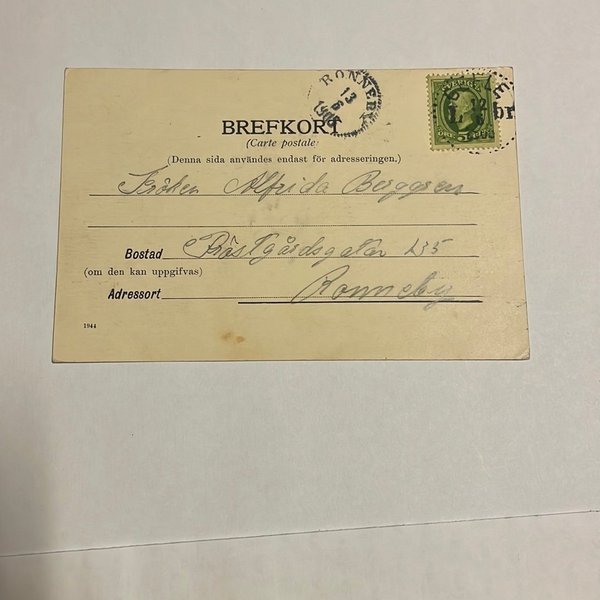 RONNEBY
13
6
1905
SVERIGE
BREFKORT
(Carte postale)
(Denna sida användes endast för adresseringen.)
Fröken Alfrida Berggren
Bostad Prästgårdsgatan 235
(om den kan uppgifvas)
Adressort Ronneby
1944